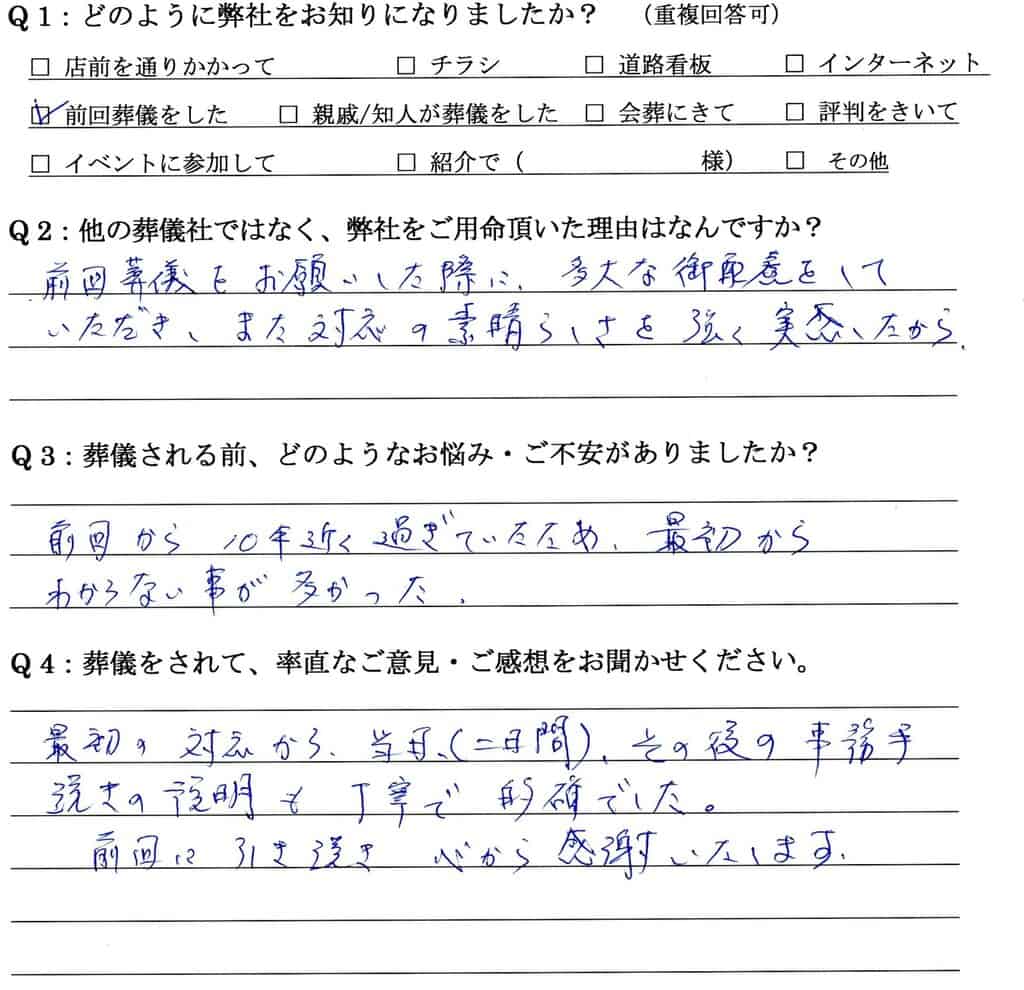 Q1：どのように弊社をお知りになりましたか？　（重複回答可）
□ 店前を通りかかって　□ チラシ　□ 道路看板　□ インターネット
☑ 前回葬儀をした　□ 親戚/知人が葬儀をした　□ 会葬にきて　□ 評判をきいて
□ イベントに参加して　□ 紹介で（　　　　　　様）　□ その他
Q2：他の葬儀社ではなく、弊社をご用命頂いた理由はなんですか？
前回葬儀をお願いした際に、多大な御配慮をして
いただき、また対応の素晴らしさを強く実感したから。
Q3：葬儀される前、どのようなお悩み・ご不安がありましたか？
前回から10年近く過ぎていたため、最初から
わからない事が多かった。
Q4：葬儀をされて、率直なご意見・ご感想をお聞かせください。
最初の対応から、当日、（二日間）、その後の事務手
続きの説明も丁寧で的確でした。
前回に引き続き心から感謝いたします。